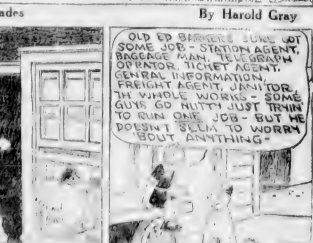 ades
By Harold Gray
OLD ED BARKERS SURE GOT
SOME JOB - STATION AGENT,
BAGGAGE MAN, TELEGRAPH
OPRATOR, TICKET AGENT,
GENRAL INFORMATION,
FREIGHT AGENT, JANITOR,
TH' WHOLE WORKS - SOME
GUYS GO NUTTY JUST TRYIN'
TO RUN ONE JOB - BUT HE
DOESN'T SEEM TO WORRY
'BOUT ANYTHING -